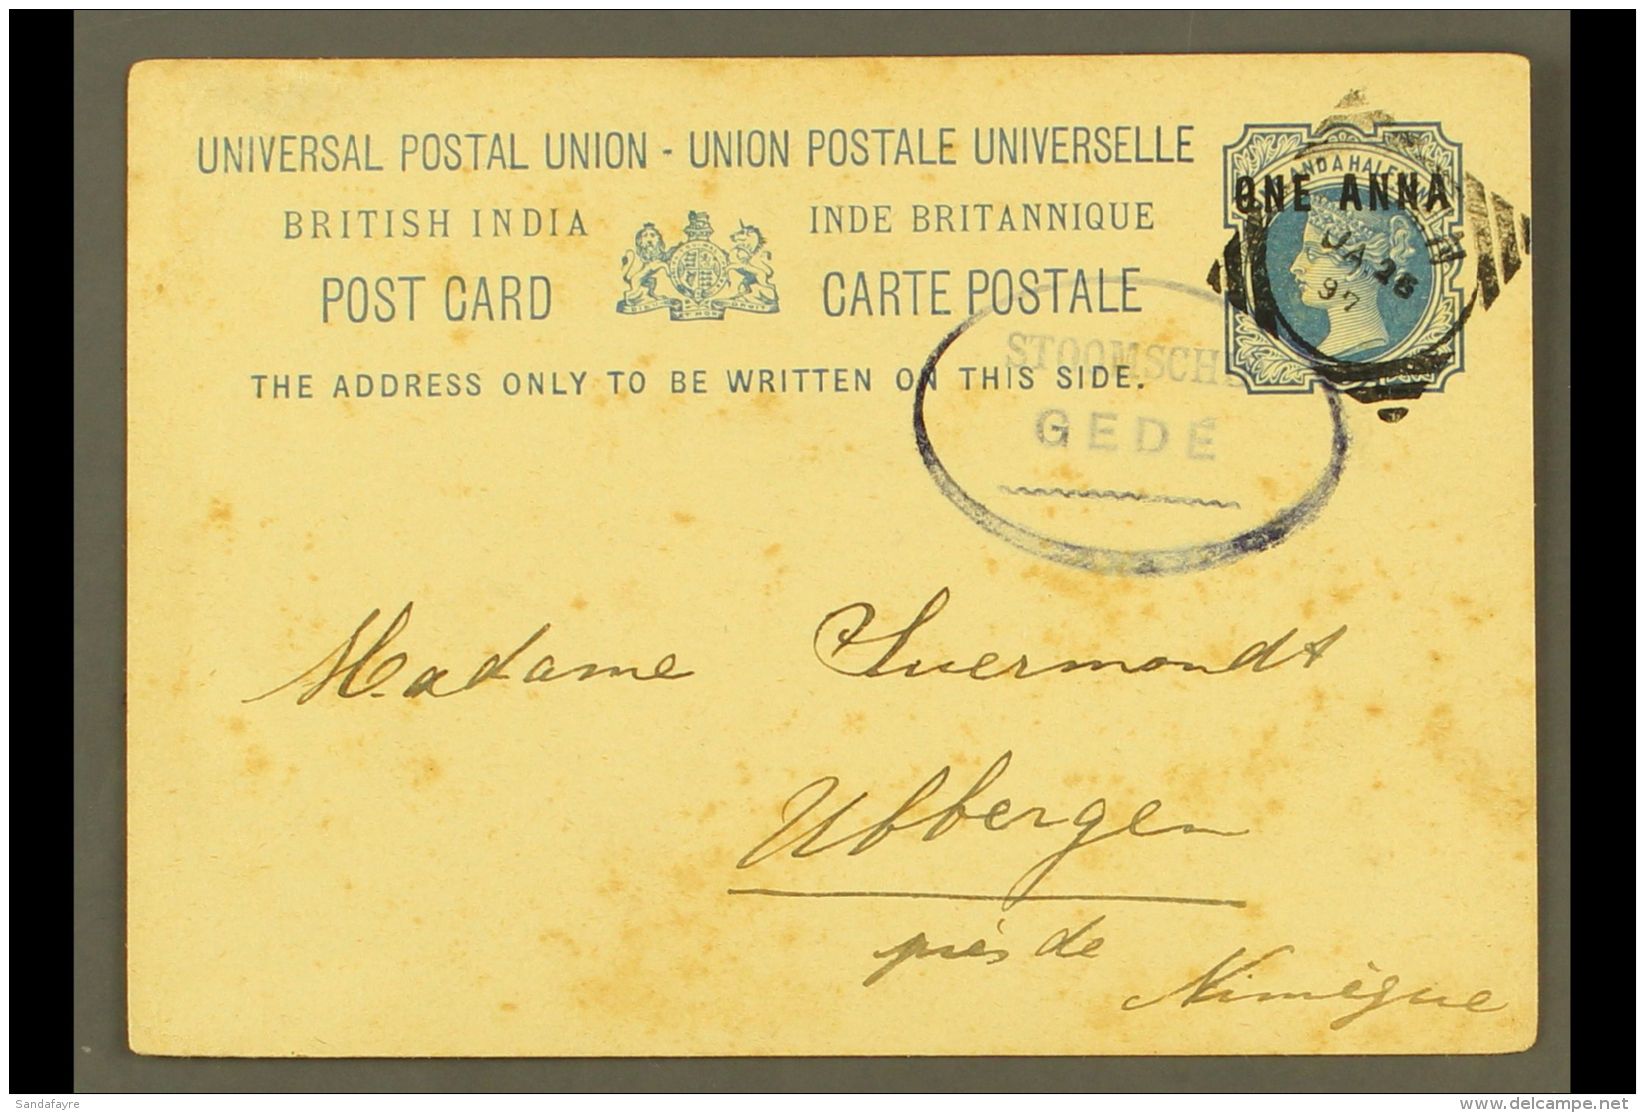 UNIVERSAL POSTAL UNION - UNION POSTALE UNIVERSELLE
BRITISH INDIA INDE BRITANNIQUE
POST CARD CARTE POSTALE
THE ADDRESS ONLY TO BE WRITTEN ON THIS SIDE.
AND A HALF
ONE ANNA
JA 26
97
STOOMSCH
GEDÉ
Madame Suermondt
Ubbergen
près de
Nimègue
Sandafayre
delcampe.net